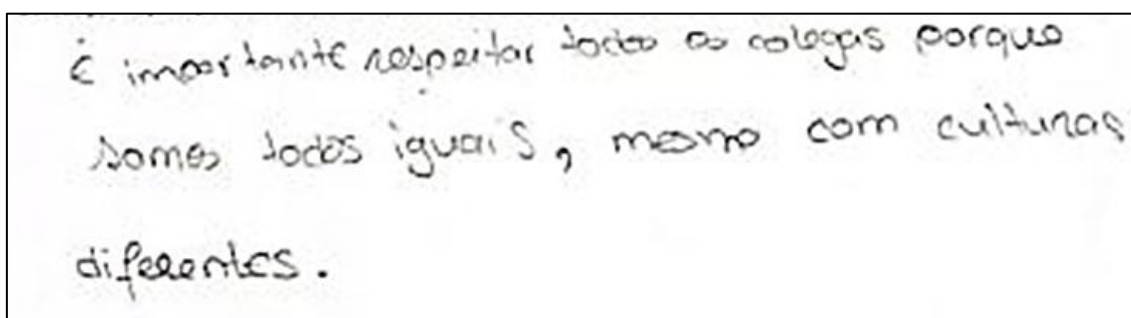 É importante respeitar todos os colegas porque
somos todos iguais, mesmo com culturas
diferentes.